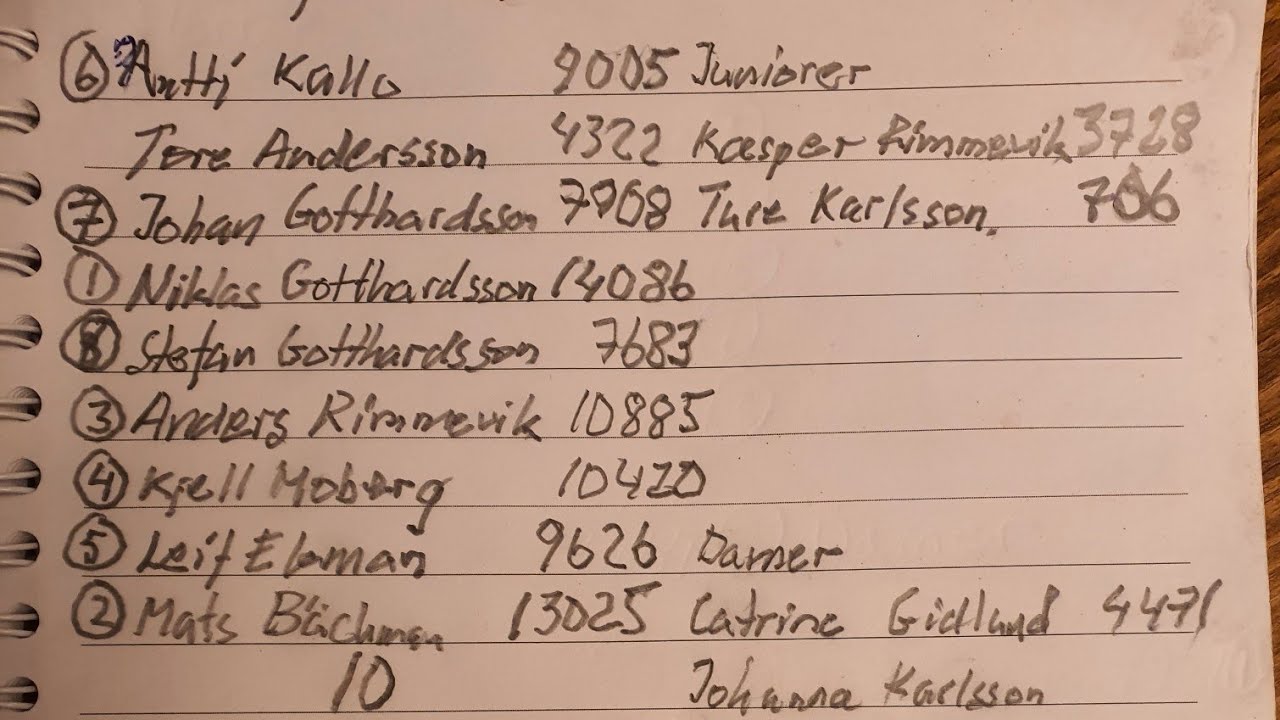 ⑥ Antti Kallo 9005 Juniorer
Tore Andersson 4322 Kasper Rimmevik 3728
⑦ Johan Gotthardsson 7908 Ture Karlsson. 706
① Niklas Gotthardsson 14086
⑧ Stefan Gotthardsson 7683
③ Anders Rimmevik 10885
④ Kjell Moberg 10420
⑤ Leif Ekman 9626 Damer
② Mats Bäckman 13025 Catrine Gidlund 4471
10 Johanna Karlsson